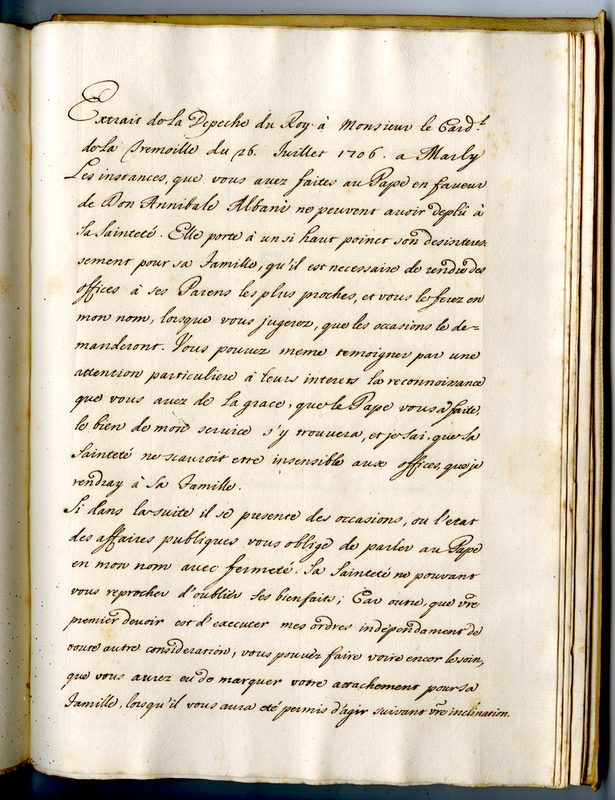 Extrait de la Depeche du Roy à Monsieur le Card.l
de la Tremoille du 26. Juillet 1706. a Marly
Les instances, que vous avez faites au Pape en faveur
de Don Annibale Albani ne peuvent avoir deplû à
Sa Sainteté. Elle porte à un si haut poinct son desinteres-
sement pour sa Famille, qu'il est necessaire de rendre des
offices à ses Parens les plus proches, et vous le ferez en
mon nom, lorsque vous jugerez, que les occasions le de=
manderont. Vous pouvez meme temoigner par une
attention particuliere à leurs interets la reconnoissance
que vous avez de la grace, que le Pape vous a faite,
le bien de mon service s'y trouvera, et je sai, que Sa
Sainteté ne scauroit etre insensible aux offices, que je
rendray à Sa Famille.
Si dans la suite il se presente des occasions, ou l'etat
des affaires publiques vous oblige de parler au Pape
en mon nom avec fermeté. Sa Sainteté ne pouvant
vous reprocher d'oublier ses bienfaits; Car outre, que vre
premier devoir est d'executer mes ordres independament de
toute autre consideration, vous pouvez faire voire encor le soin,
que vous aurez eu de marquer votre attachement pour sa
Famille, lorsqu'il vous aura eté permis d'agir suivant vre inclination.